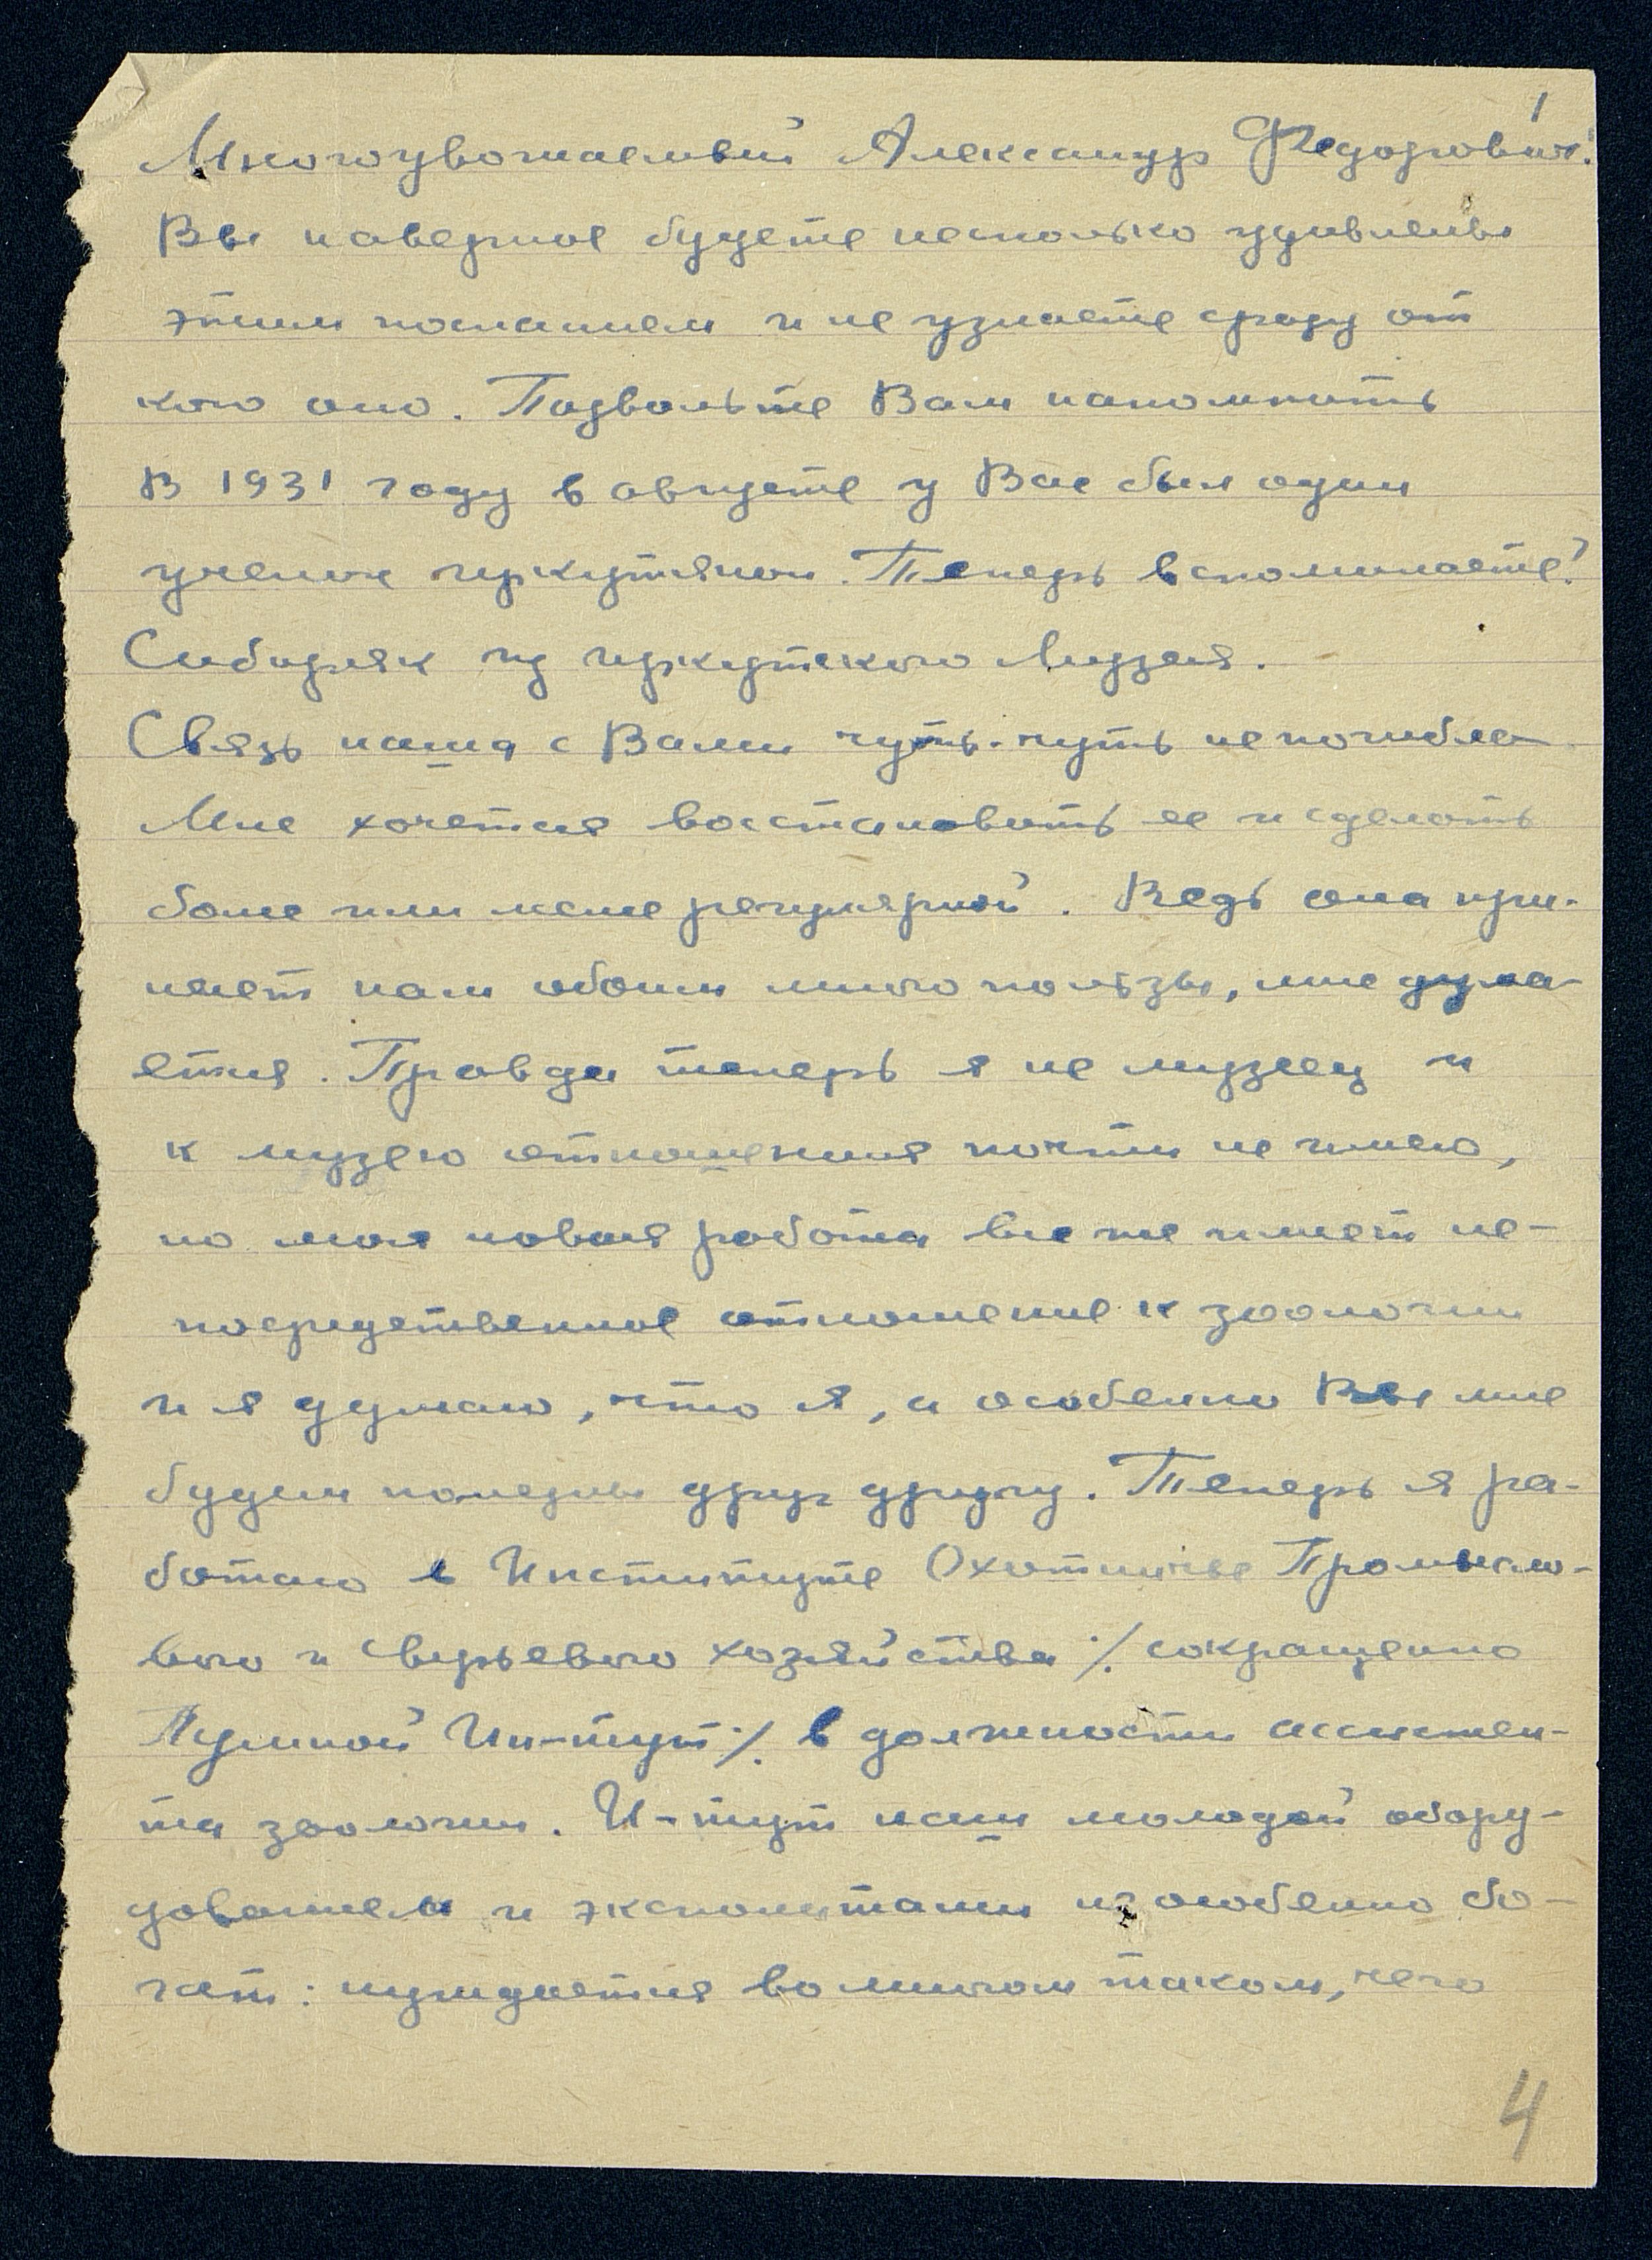 1
Многоуважаемый Александр Федорович!
Вы наверное будете несколько удивлены
этим посланием и не узнаете сразу от
кого оно. Позвольте Вам напомнить
В 1931 году в августе у Вас был один
ученик иркутянин. Теперь вспоминаете?
Сибиряк из иркутского Музея.
Связь наша с Вами чуть-чуть не погибла.
Мне хочется восстановить ее и сделать
более или менее регулярной. Ведь она при-
несет нам обоим много пользы, мне дума-
ется. Правда теперь я не музеец и
к музею отношения почти не имею,
но моя новая работа все же имеет не-
посредственное отношение к зоологии
и я думаю, что я, а особенно Вы мне
будем полезны друг другу. Теперь я ра-
ботаю в Институте Охотничье Промысло-
вого и Зверьевого хозяйства ·/. сокращенно
Пушной Ин-тут ·/. в должности ассистен-
та зоологии. И-тут наш молодой обору-
дованием и экспонатами не особенно бо-
гат: нуждается во многом таком, чего
4